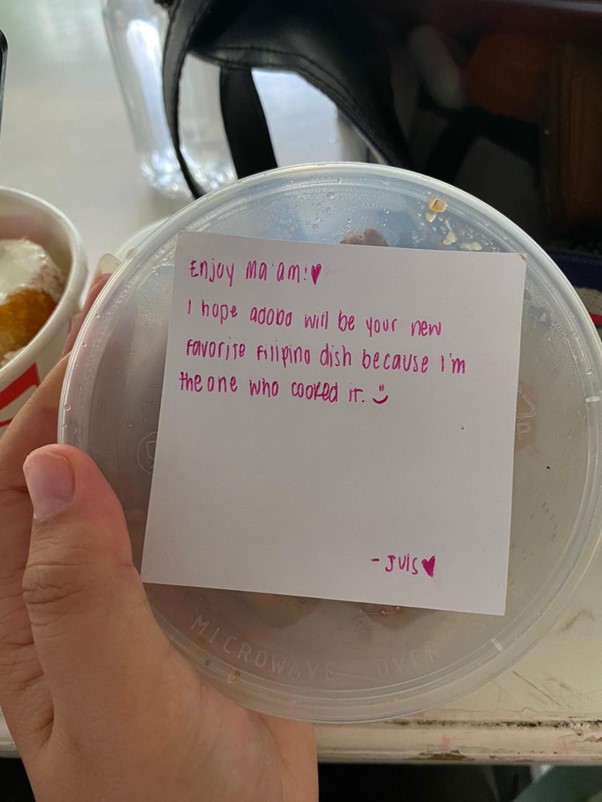 Enjoy Ma'am!♥
I hope adobo will be your new
favorite Filipino dish because I'm
the one who cooked it. :)
- Juis♥
MICROWAVE OVEN